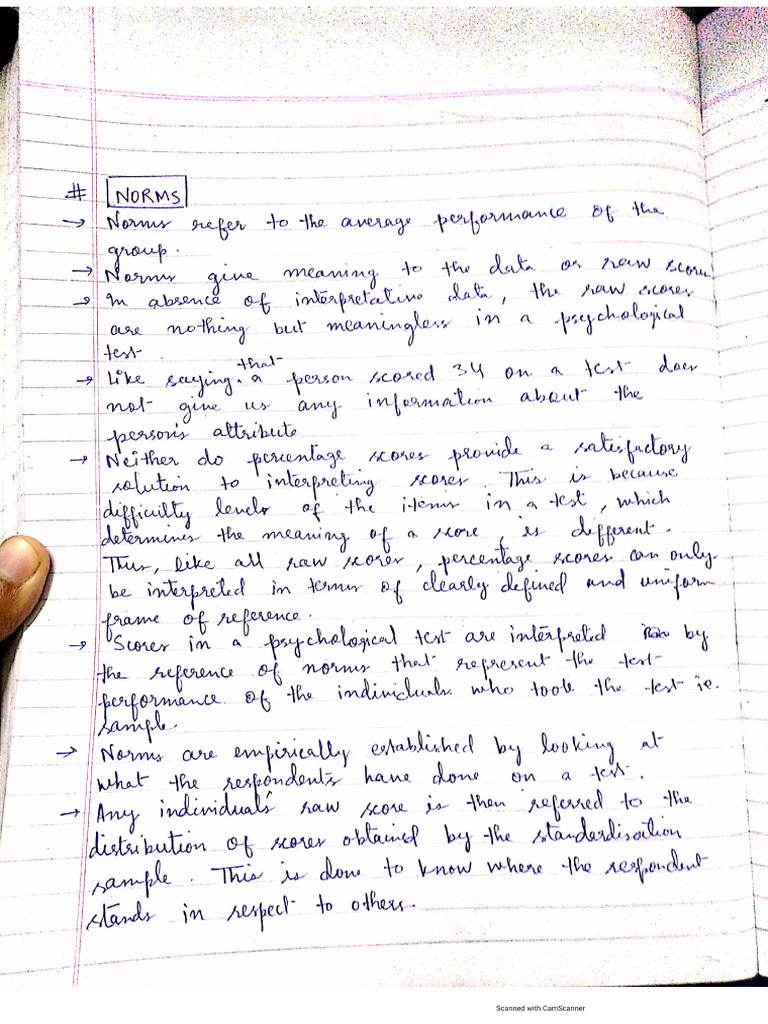 # NORMS
→ Norms refer to the average performance of the
group.
→ Norms give meaning to the data or raw score
→ In absence of interpretative data, the raw scores
are nothing but meaningless in a psychological
test.
→ Like saying that a person scored 34 on a test does
not give us any information about the
person's attribute
→ Neither do percentage scores provide a satisfactory
solution to interpreting scores. This is because
difficulty levels of the items in a test, which
determines the meaning of a score, is different.
Thus, like all raw scores, percentage scores can only
be interpreted in terms of clearly defined and uniform
frame of reference.
→ Scores in a psychological test are interpreted by
the reference of norms that represent the test
performance of the individuals who took the test ie.
sample.
→ Norms are empirically established by looking at
what the respondents have done on a test.
→ Any individual's raw score is then referred to the
distribution of scores obtained by the standardisation
sample. This is done to know where the respondent
stands in respect to others.
Scanned with CamScanner